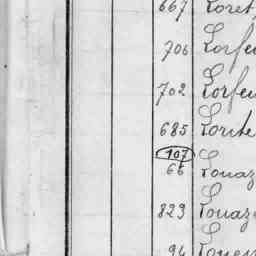 667 Loret
706 Lorfeu
702 Lorfeu
685 Lorite
107
66 Louaz
823 Louaz
94 Louen